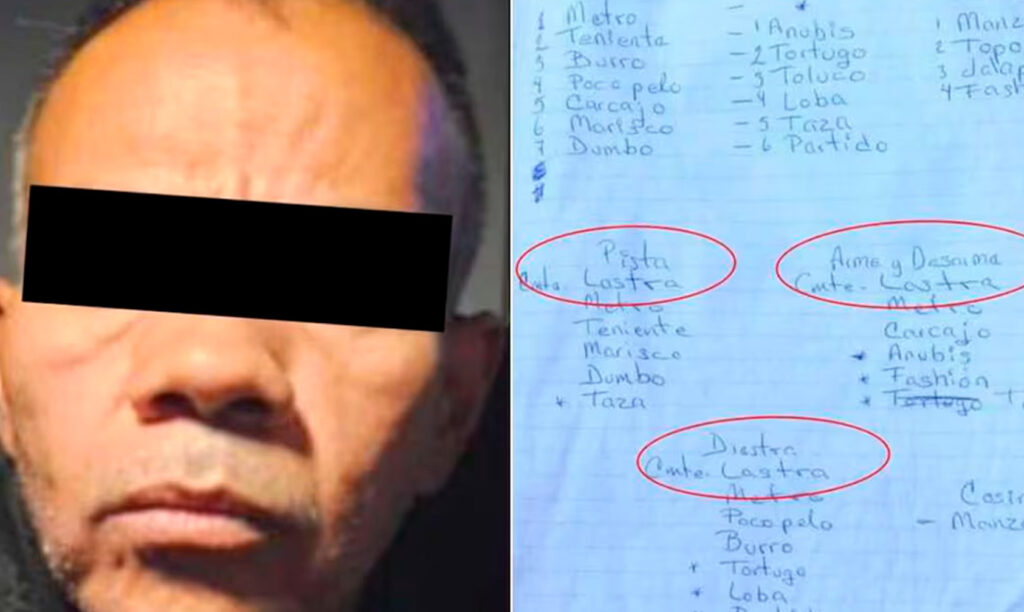 1 Metro
2 Teniente
3 Burro
4 Poco pelo
5 Carcajo
6 Marisco
7 Dumbo
8
9
- *
- 1 Anubis
- 2 Tortugo
- 3 Toluco
- 4 Loba
- 5 Taza
- 6 Partido
1 Manz
2 Topo
3 Jalap
4 Fash
Pista
Cmte. Lastra
Metro
Teniente
Marisco
Dumbo
* Taza
Arme y Desarme
Cmte. Lastra
Metro
Carcajo
* Anubis
* Fashión
* Tortugo T
Diestra
Cmte. Lastra
Metro
Poco pelo
Burro
* Tortugo
* Loba
Casi
- Manza